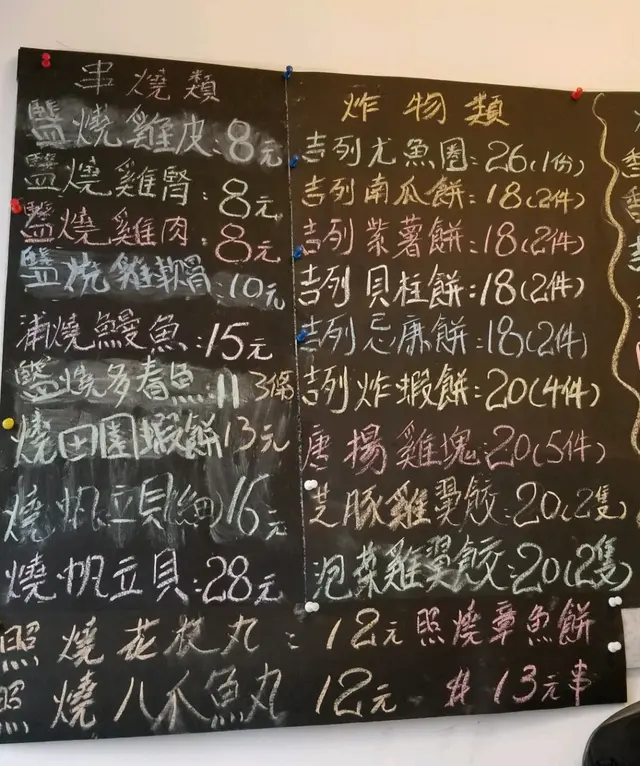 串燒類
鹽燒雞皮:8元
鹽燒雞腎:8元
鹽燒雞肉:8元
鹽燒雞軟骨:10元
蒲燒鰻魚:15元
鹽燒多春魚:11 3條
燒田園蝦餅13元
燒帆立貝(細)16元
燒帆立貝:28元
炸物類
吉列尤魚圈:26(1份)
吉列南瓜餅:18(2件)
吉列紫薯餅:18(2件)
吉列貝柱餅:18(2件)
吉列忌廉餅:18(2件)
吉列炸蝦餅:20(4件)
唐揚雞塊:20(5件)
芝豚雞翼餃:20(2隻)
泡菜雞翼餃:20(2隻)
照燒花枝丸:12元
照燒八爪魚丸12元
照燒章魚餅
#13元串